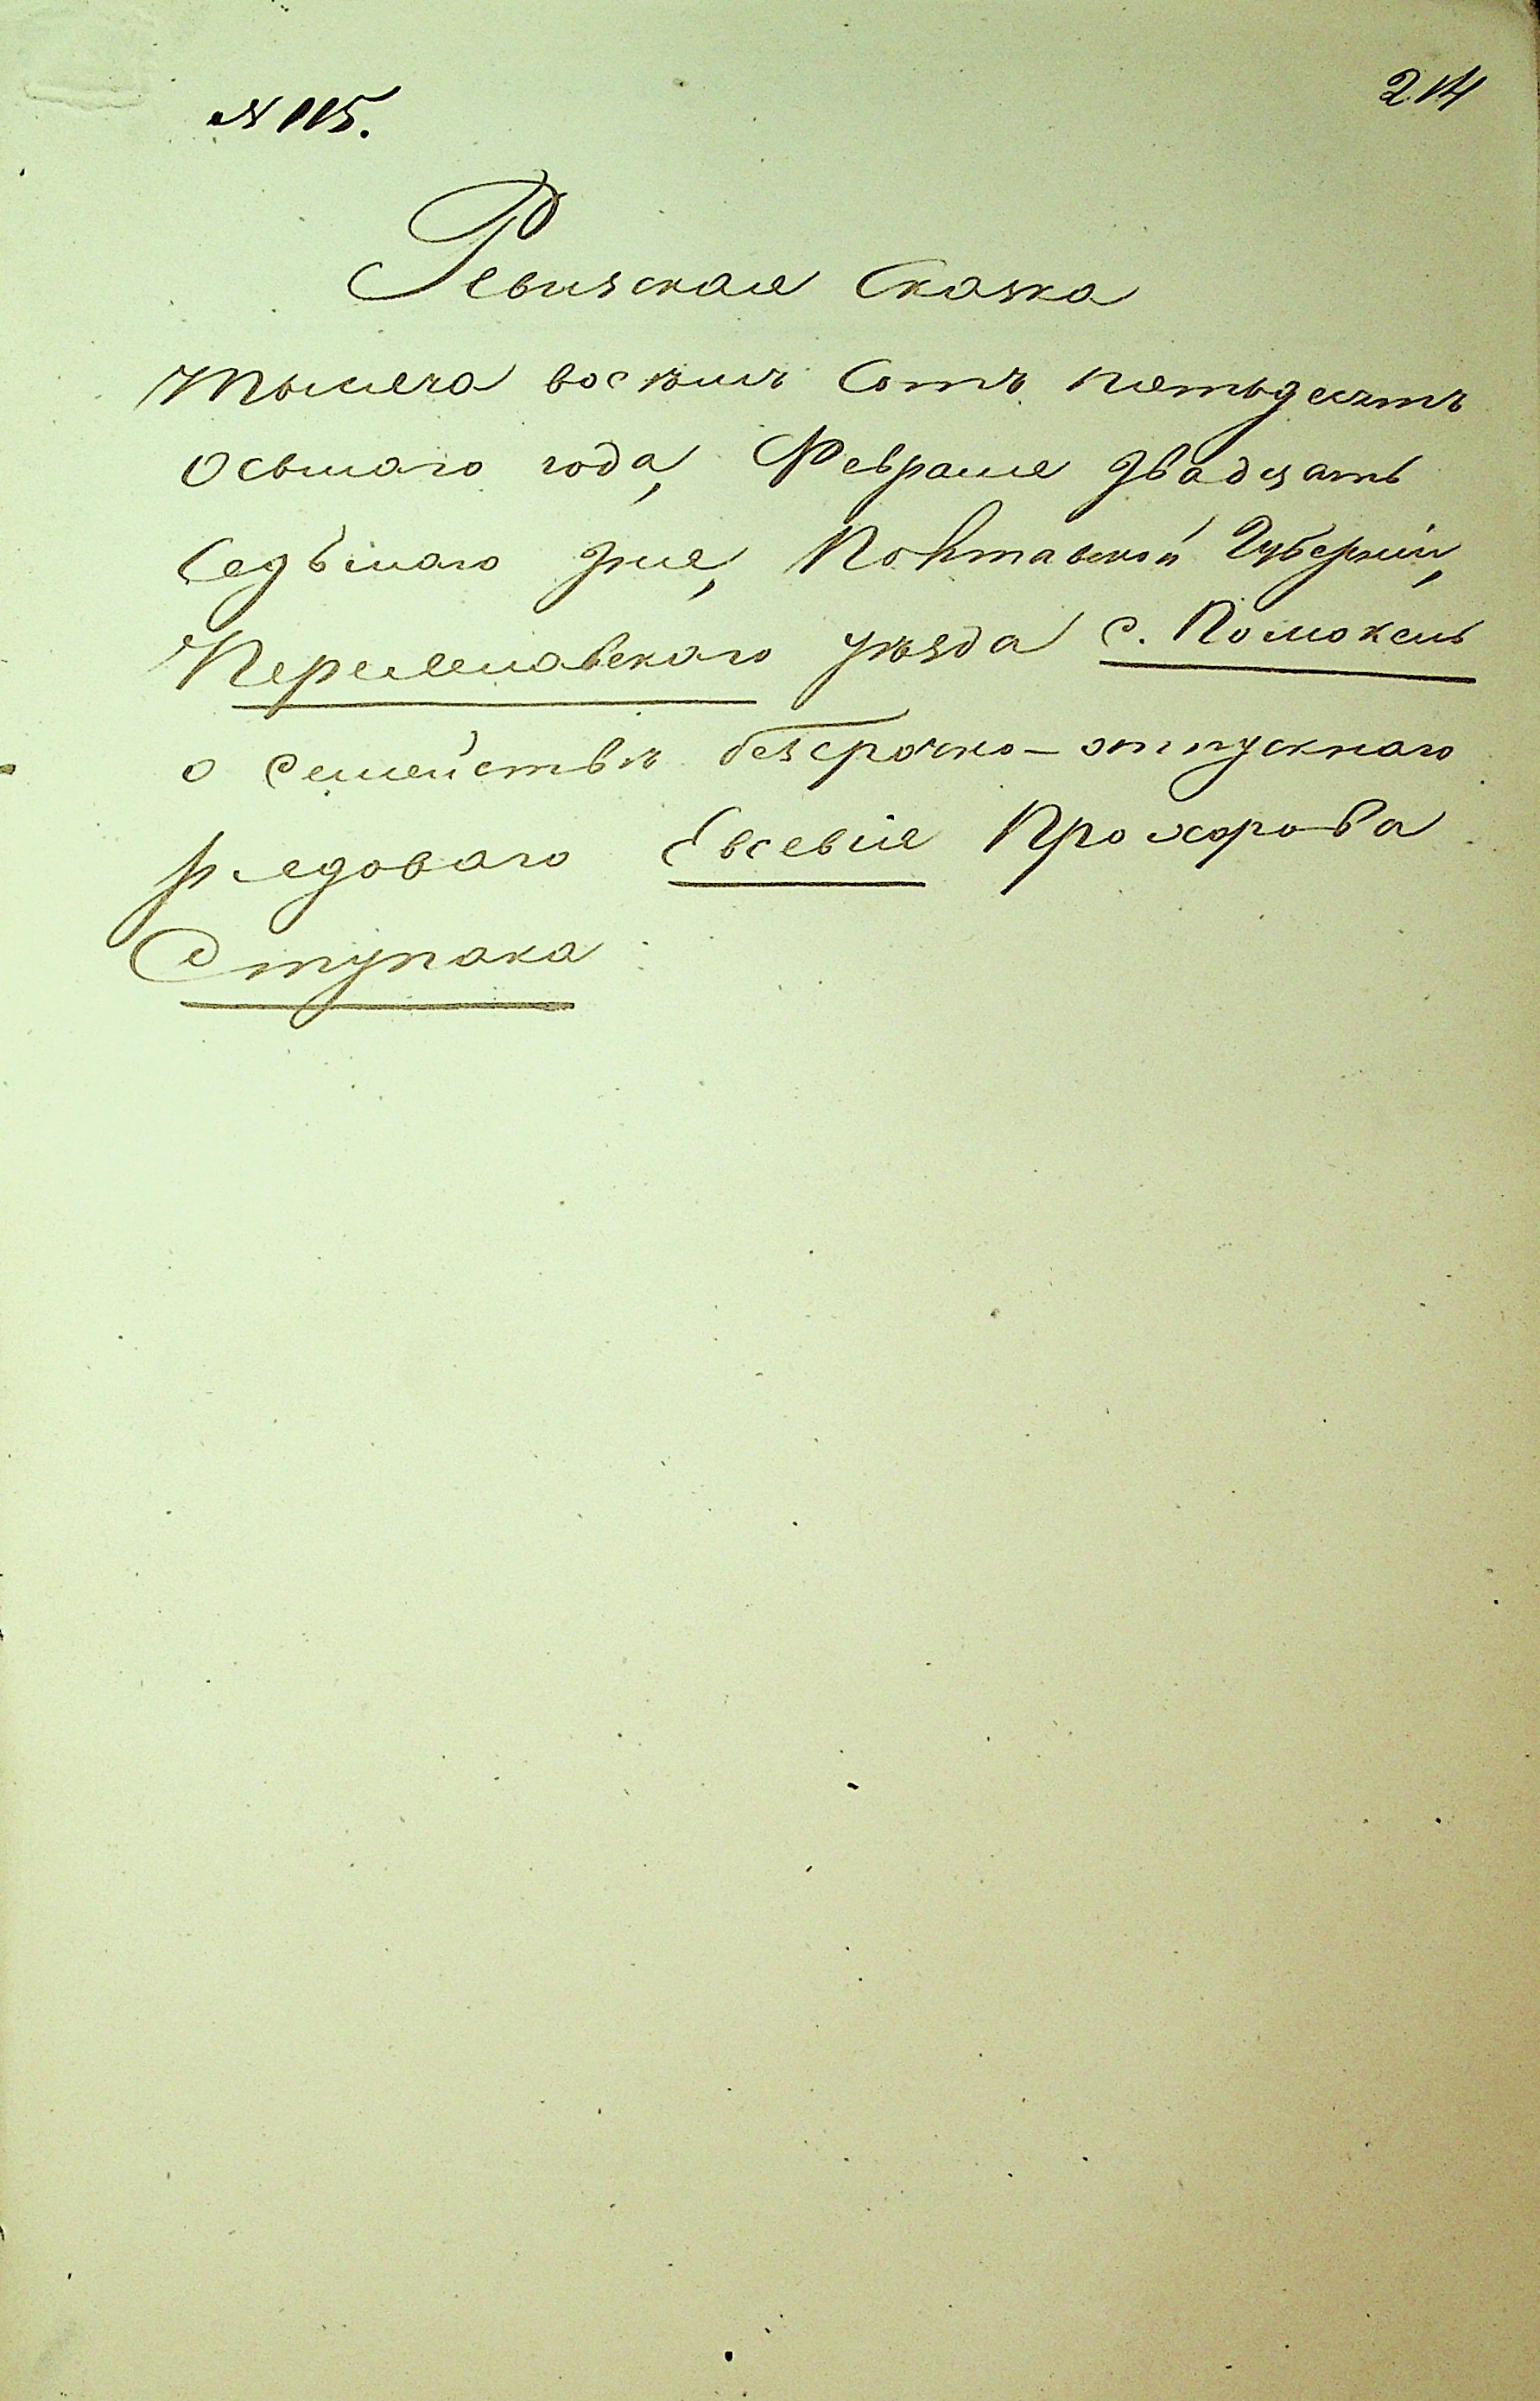 № 115.
214
Ревизская Сказка
Тысяча восѣмъ Сотъ пятьдесятъ
Осьмаго года, Февраля двадцать
Седьмаго дня, Полтавской Губерніи,
Переяславскаго уѣзда с. Помоклы
о семействѣ безсрочно-отпускнаго
рядоваго Евсевія Прохорова
Ступака